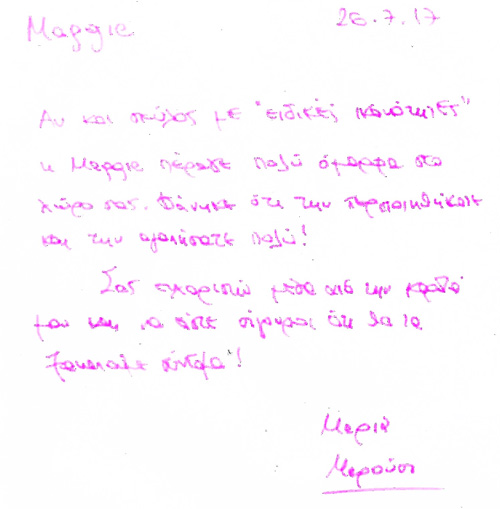 Maggie 26.7.17
Αν και σκύλος με "ειδικές ικανότητες"
η Maggie πέρασε πολύ όμορφα στο
χώρο σας. Φάνηκε ότι την περιποιηθήκατε
και την αγαπήσατε πολύ!
Σας ευχαριστώ μέσα από την καρδιά
μου και να είστε σίγουροι ότι θα τα
ξαναπούμε σύντομα!
Μαρία
Μαρούσι